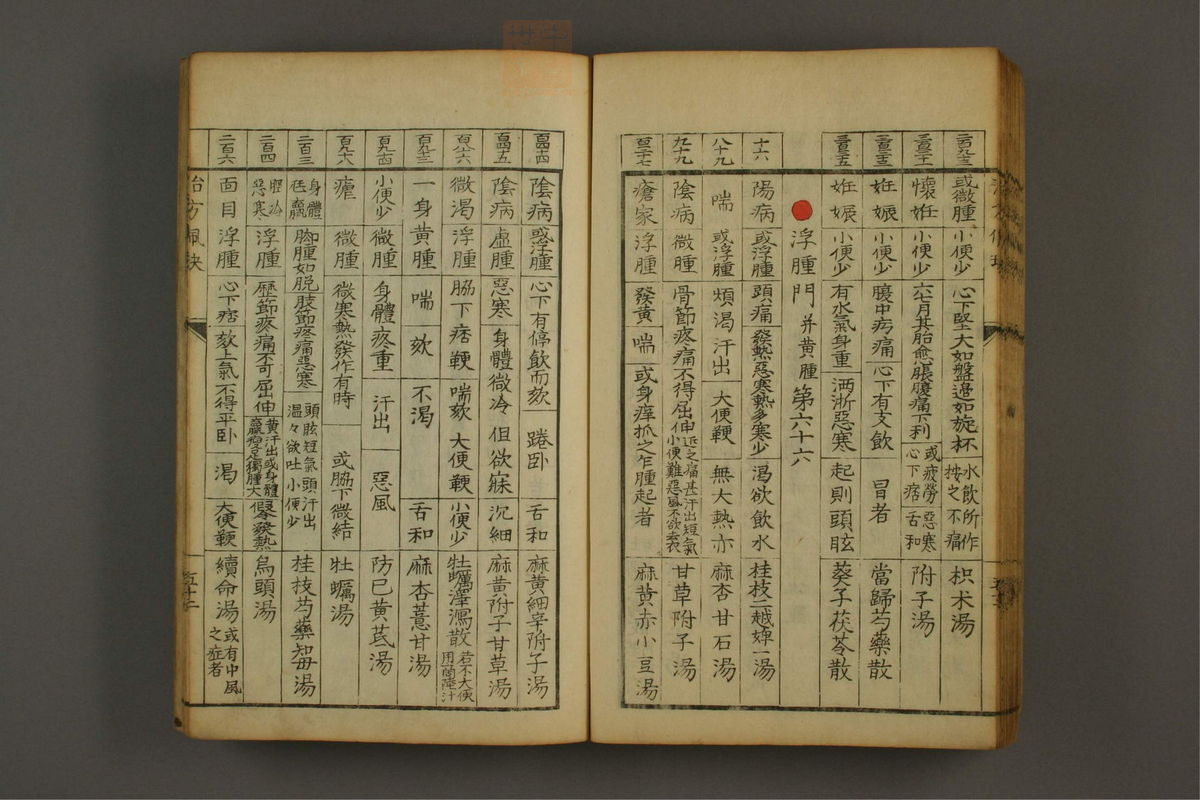 或微腫 小便少 心下堅大如盤邊如旋杯 水飲所作按之不痛 枳朮湯
懷妊 小便少 六七月其胎愈脹腹痛下利 或疲勞惡寒心下痞舌和 附子湯
妊娠 小便少 腹中㽲痛 心下有支飲 冒者 當歸芍藥散
妊娠 小便少 有水氣身重 洒淅惡寒 起則頭眩 葵子茯苓散
浮腫門 并黄腫 第六十六
十六 陽病 或浮腫 頭痛 發熱惡寒熱多寒少 渴欲飲水 桂枝二越婢一湯
八十九 喘 或浮腫 煩渴 汗出 大便鞕 無大熱亦 麻杏甘石湯
九十九 陰病 微腫 骨節疼痛不得屈伸 近之痛甚汗出短氣小便難惡風不欲去衣 甘草附子湯
瘡家 浮腫 發黄 喘 或身痒抓之乍腫起者 麻黄赤小豆湯
陰病 或浮腫 心下有停飲而欬 踡卧 舌和 麻黄細辛附子湯
陰病 虛腫 惡寒 身體微冷 但欲寐 沉細 麻黄附子甘草湯
百八十六 微渴 浮腫 脇下痞鞕 喘欬 大便鞕 小便少 牡蠣澤瀉散 若不大便用商陸汁
一身黄腫 喘 欬 不渴 舌和 麻杏薏甘湯
小便少 微腫 身體疼重 汗出 惡風 防已黄芪湯
瘧 微腫 微寒熱發作有時 或脇下微結 牡蠣湯
二百三 身體尫羸 脚腫如脱 肢節疼痛惡寒 頭眩短氣頭汗出温々欲吐小便少 桂枝芍藥知母湯
二百四 脛冷惡寒 浮腫 歷節疼痛不可屈伸 黄汗出或身體羸瘦足獨腫大 發熱 烏頭湯
二百六 面目浮腫 心下痞 欬上氣不得平卧 渴 大便鞕 續命湯 或有中風之症者
治方
五十二